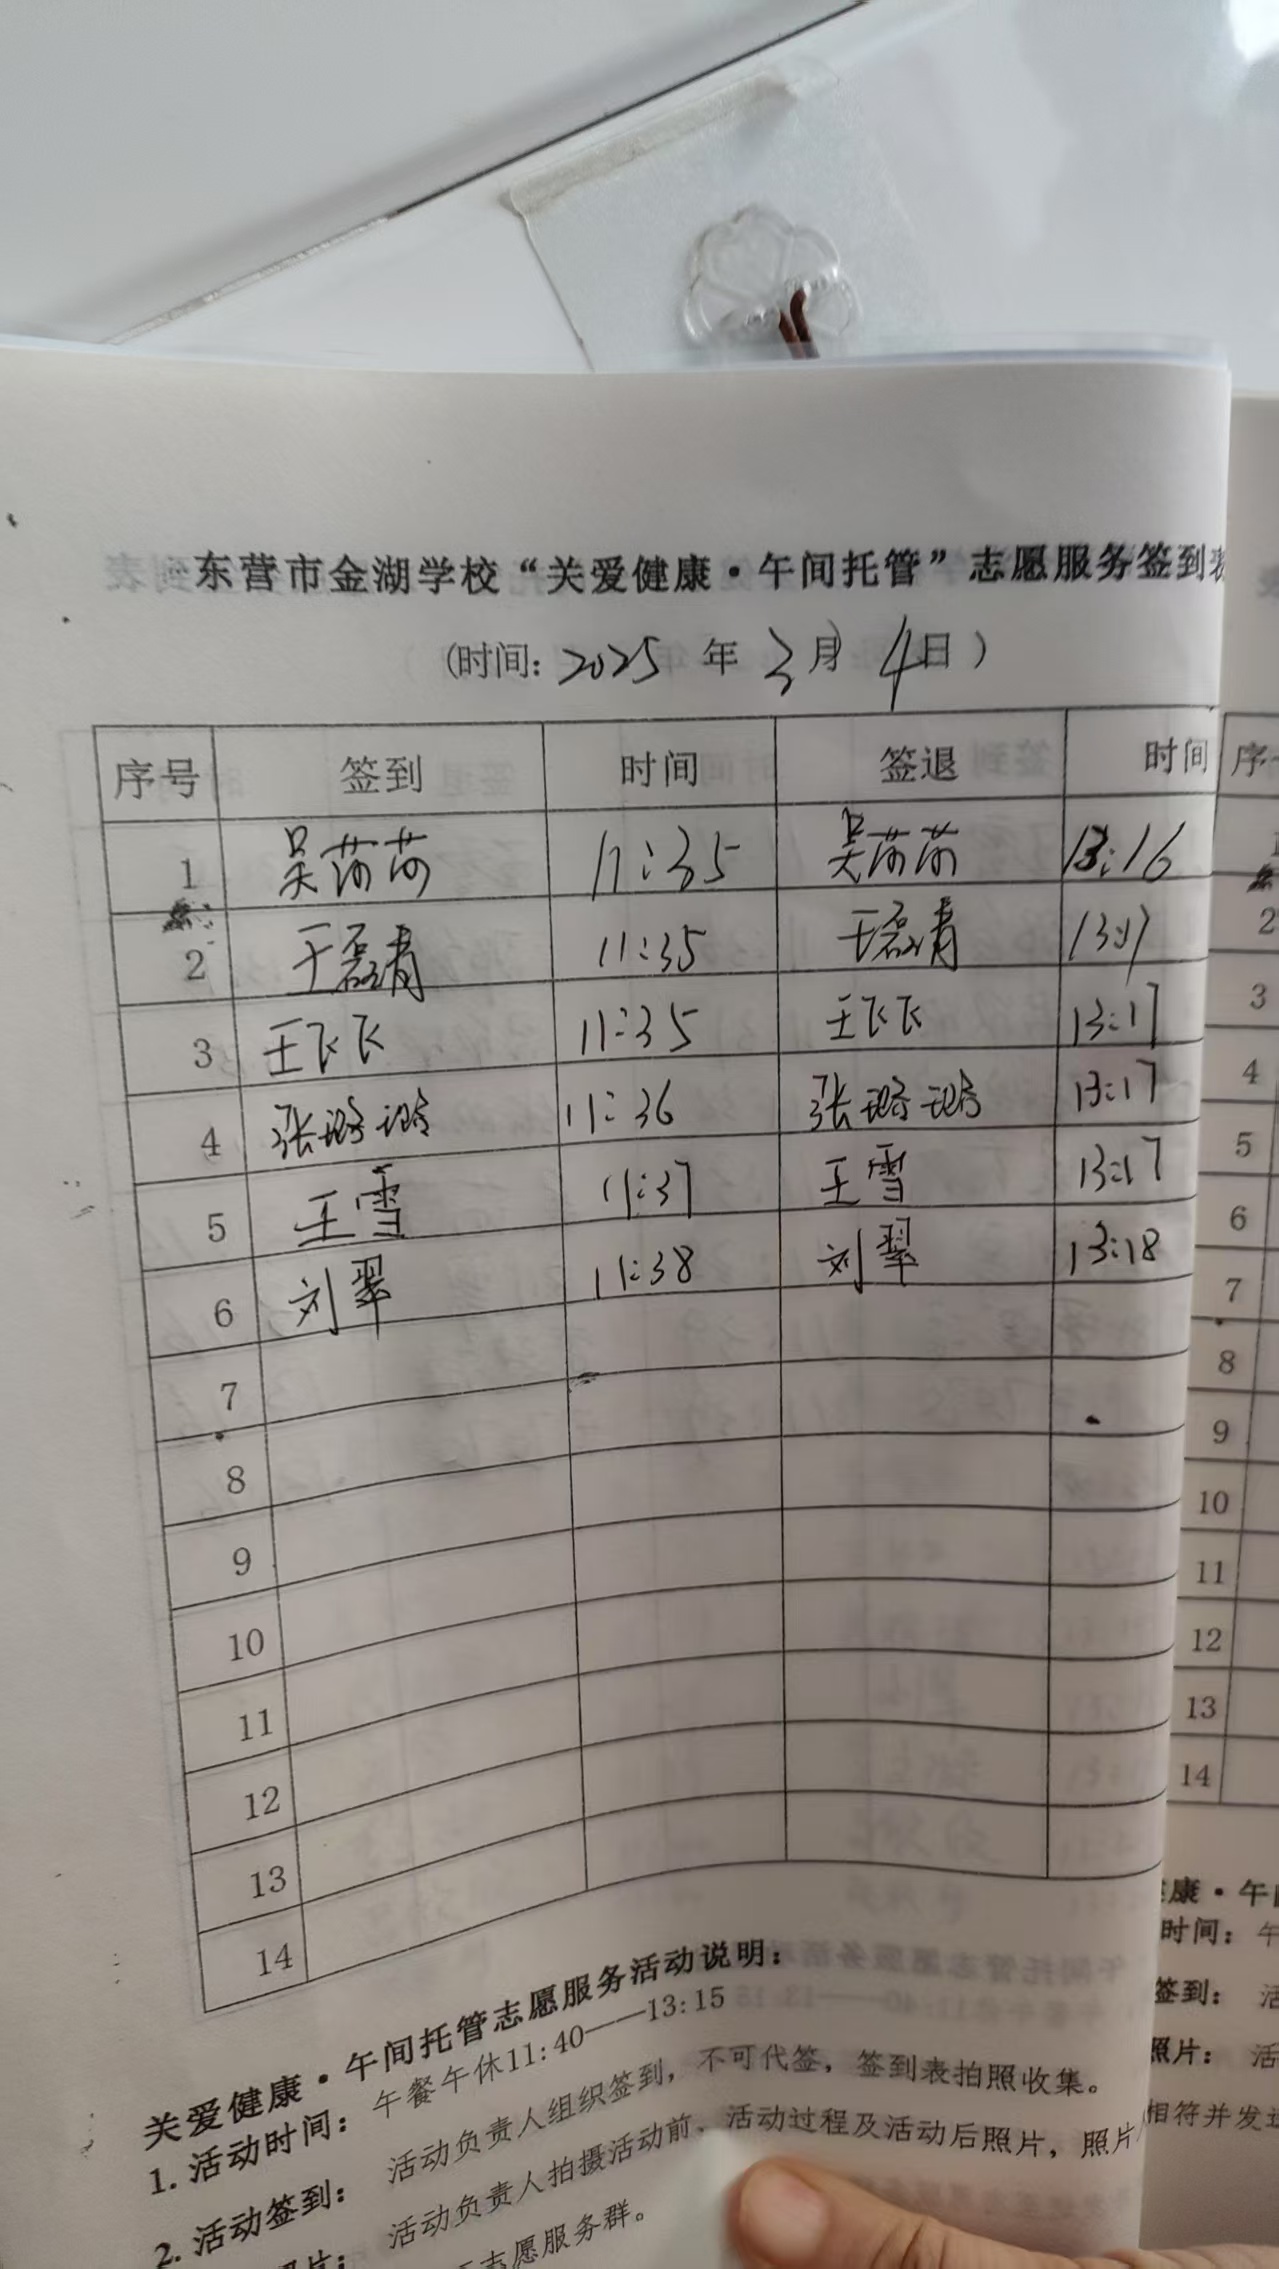 东营市金湖学校“关爱健康·午间托管”志愿服务签到表
(时间: 2025 年 3月 4日)
序号 签到 时间 签退 时间
1 吴莎莎 11:35 吴莎莎 13:16
2 王磊青 11:35 王磊青 13:17
3 王飞飞 11:35 王飞飞 13:17
4 张璐璐 11:36 张璐璐 13:17
5 王雪 11:37 王雪 13:17
6 刘翠 11:38 刘翠 13:18
7
8
9
10
11
12
13
14
关爱健康·午间托管志愿服务活动说明:
1. 活动时间: 午餐午休11:40——13:15
2. 活动签到: 活动负责人组织签到，不可代签，签到表拍照收集。
活动负责人拍摄活动前、活动过程及活动后照片，照片
志愿服务群。
序
2
3
4
5
6
7
8
9
10
11
12
13
14
康·午
时间: 午
签到: 活
照片: 活
相符并发